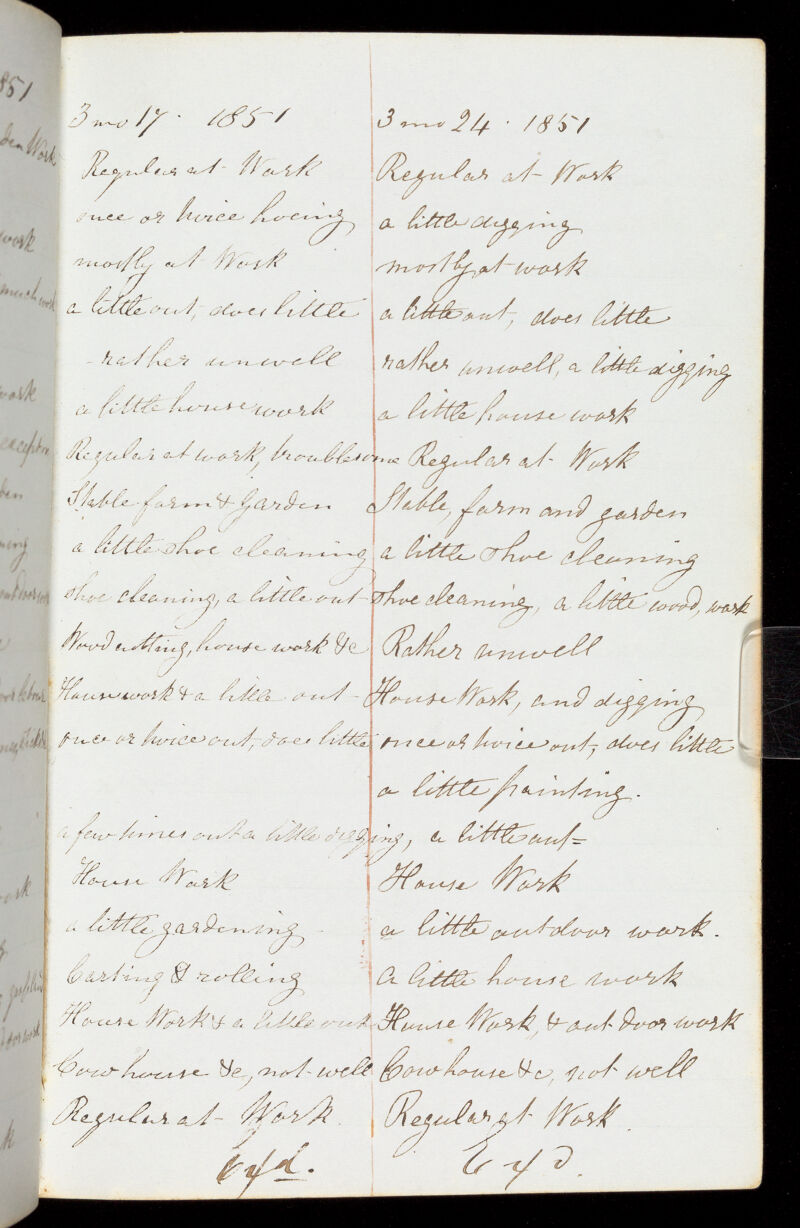 3 mo 17. 1851
Regular at Work
once or twice hoeing
mostly at Work
a little out, does little
rather unwell
a little house work
Regular at work, troublesome
Stable farm & Garden
a little shoe cleaning
Shoe cleaning, a little out
Wood cutting, house work &c
House work & a little out
once or twice out, does little
a few times out a little digging,
House Work
a little gardening
Carting & rolling
House Work & a little out
Cowhouse &c, not well
Regular at Work.
3 mo 24. 1851
Regular at Work
a little digging
mostly at work
a little out, does little
rather unwell, a little digging
a little house work
Regular at Work
Stable, farm and garden
a little shoe cleaning
Shoe cleaning, a little wood, work
Rather unwell
House Work, and digging
once or twice out, does little
a little painting.
a little out
House Work
a little outdoor work.
a little house work
House Work, & out door work
Cowhouse &c, not well
Regular at Work.
851
work
much work
work